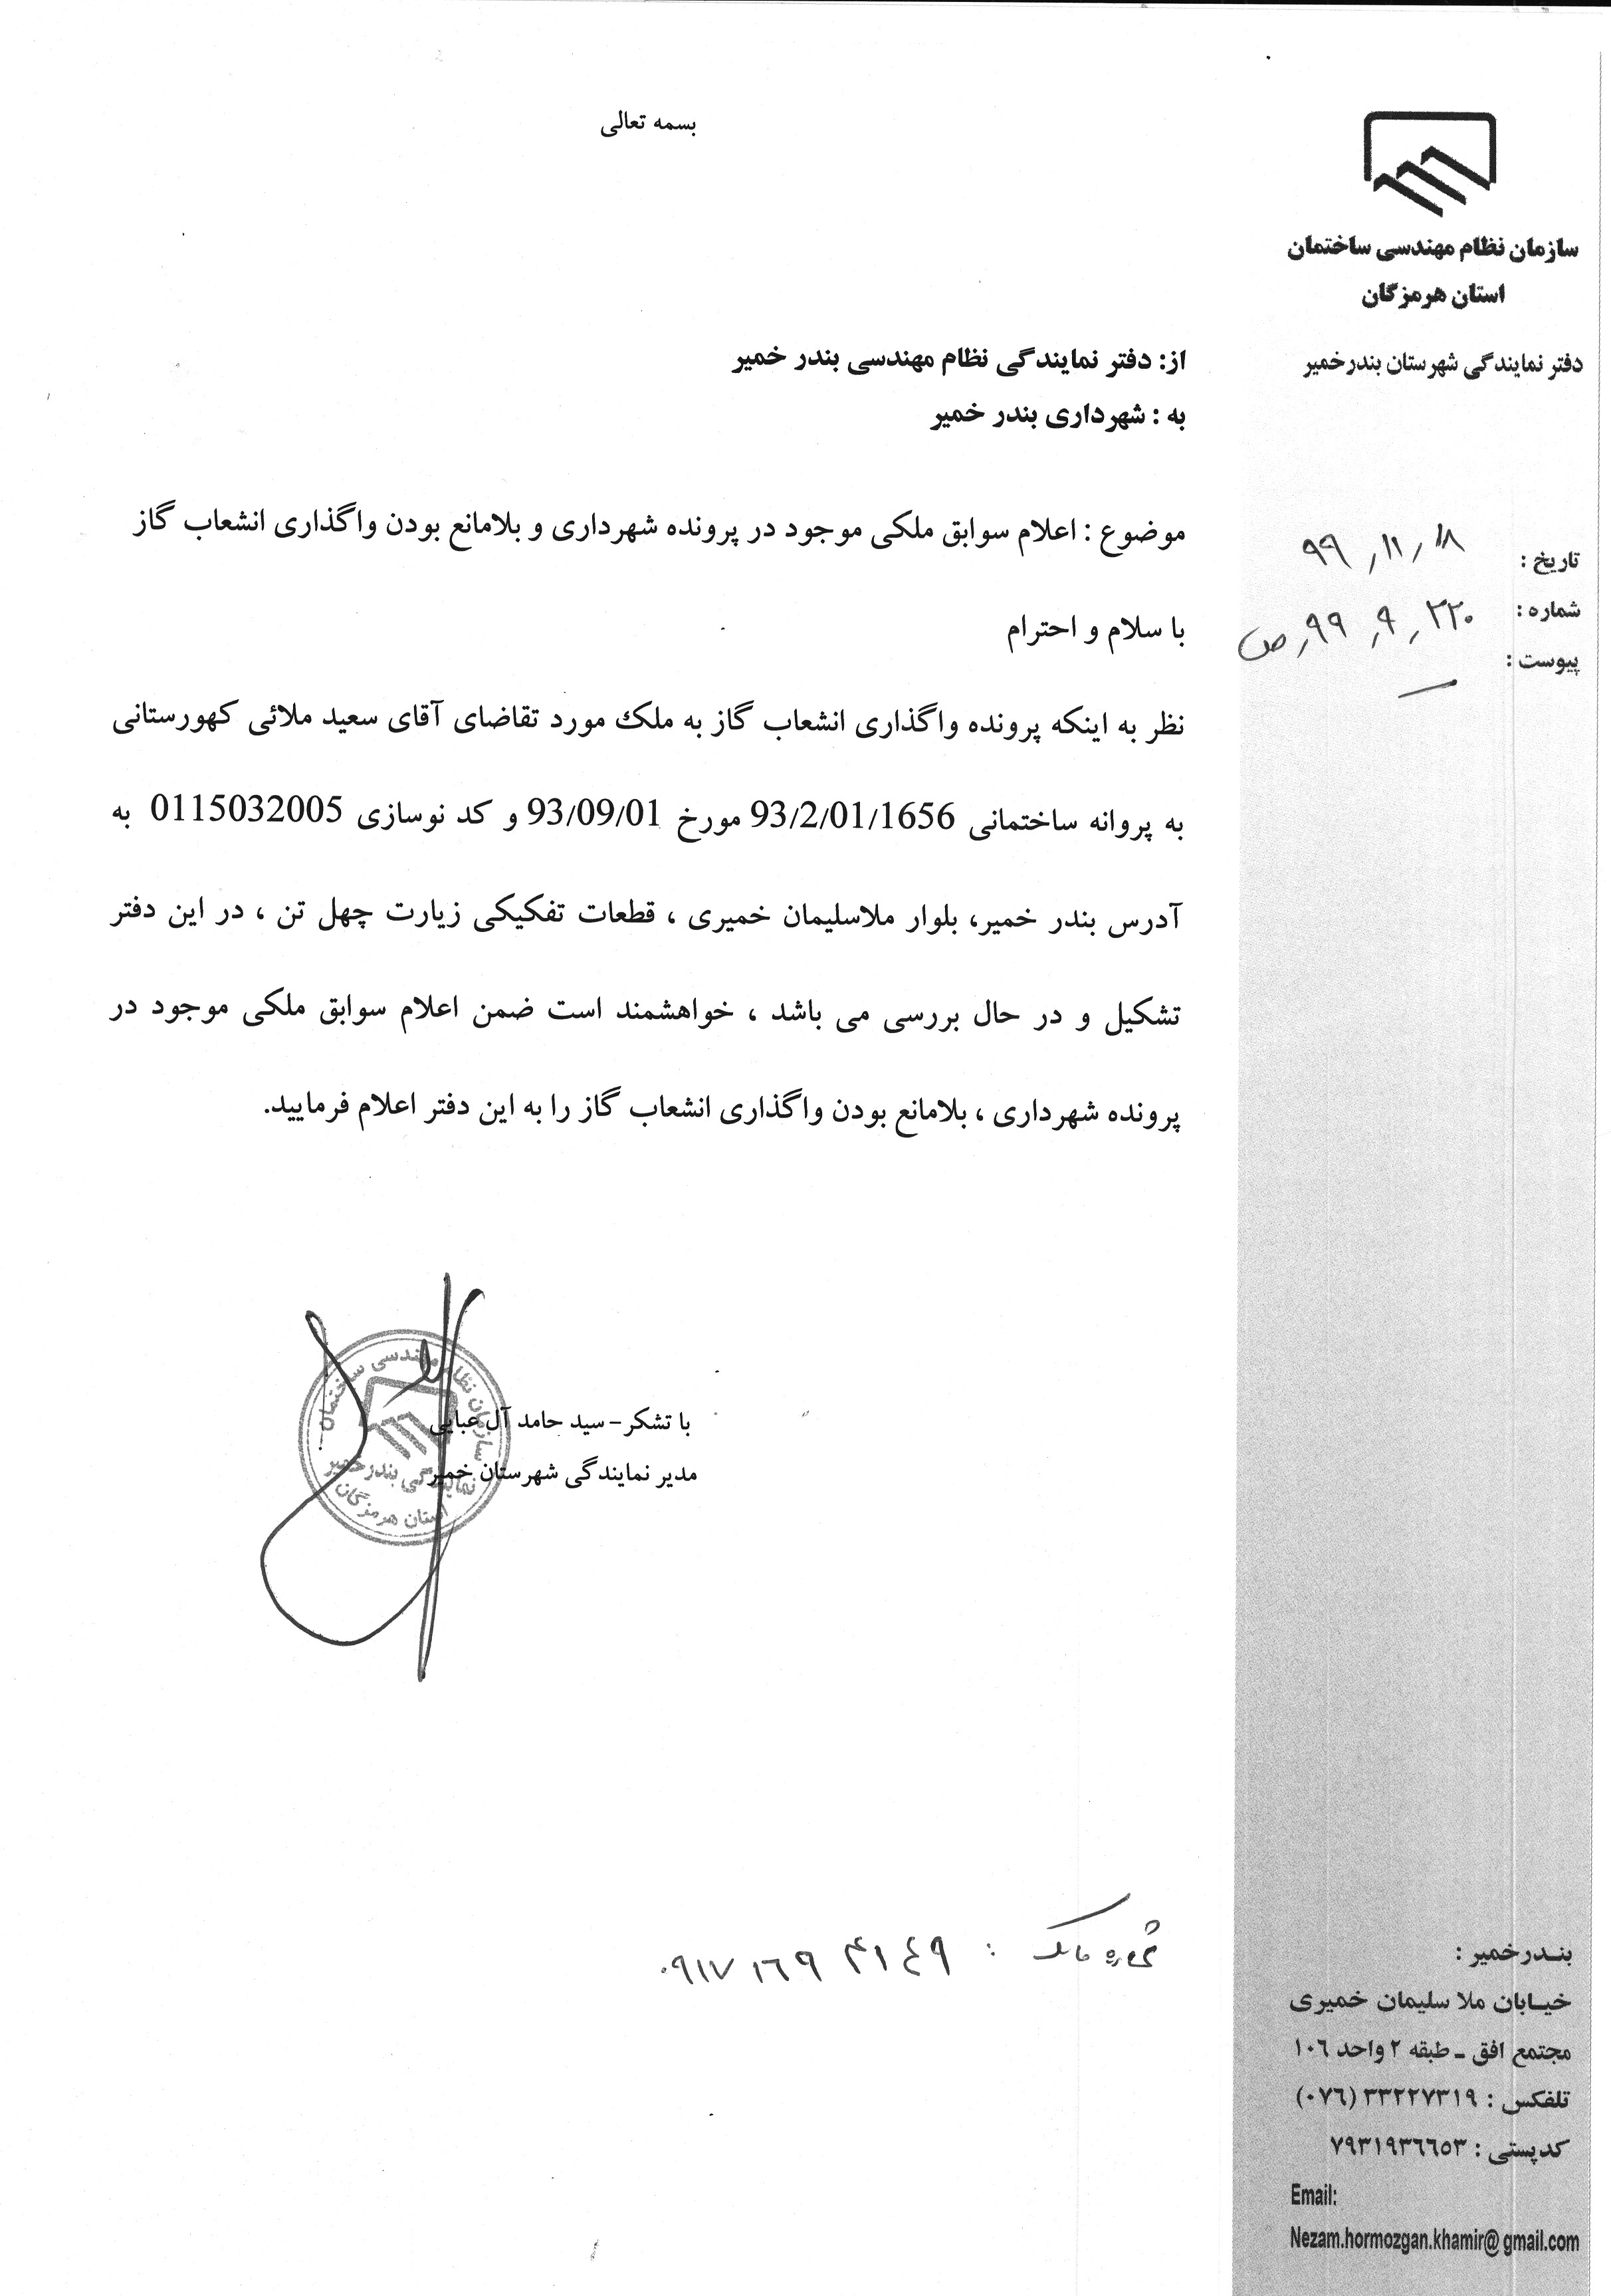 بسمه تعالی
سازمان نظام مهندسی ساختمان
استان هرمزگان
دفتر نمایندگی شهرستان بندرخمیر
تاریخ : ۹۹٫۱۱٫۱۸
شماره : ۲۲۰٫۹٫۹۹٫ص
پیوست : –
از: دفتر نمایندگی نظام مهندسی بندر خمیر
به : شهرداری بندر خمیر
موضوع : اعلام سوابق ملکی موجود در پرونده شهرداری و بلامانع بودن واگذاری انشعاب گاز
با سلام و احترام
نظر به اینکه پرونده واگذاری انشعاب گاز به ملک مورد تقاضای آقای سعید ملائی کهورستانی
به پروانه ساختمانی 93/2/01/1656 مورخ 93/09/01 و کد نوسازی 0115032005 به
آدرس بندر خمیر، بلوار ملاسلیمان خمیری ، قطعات تفکیکی زیارت چهل تن ، در این دفتر
تشکیل و در حال بررسی می باشد ، خواهشمند است ضمن اعلام سوابق ملکی موجود در
پرونده شهرداری ، بلامانع بودن واگذاری انشعاب گاز را به این دفتر اعلام فرمایید.
با تشکر – سید حامد آل عبایی
مدیر نمایندگی شهرستان خمیر
سازمان نظام مهندسی ساختمان
نمایندگی بندرخمیر
استان هرمزگان
شماره مالک : ۰۹۱۷ ۱۶۹ ۴۱۴۹
بندرخمیر :
خیابان ملا سلیمان خمیری
مجتمع افق ـ طبقه ۲ واحد ۱۰۶
تلفکس : ۳۳۲۲۷۳۱۹ (۰۷۶)
کدپستی : ۷۹۳۱۹۳۶۶۵۳
Email:
Nezam.hormozgan.khamir@gmail.com